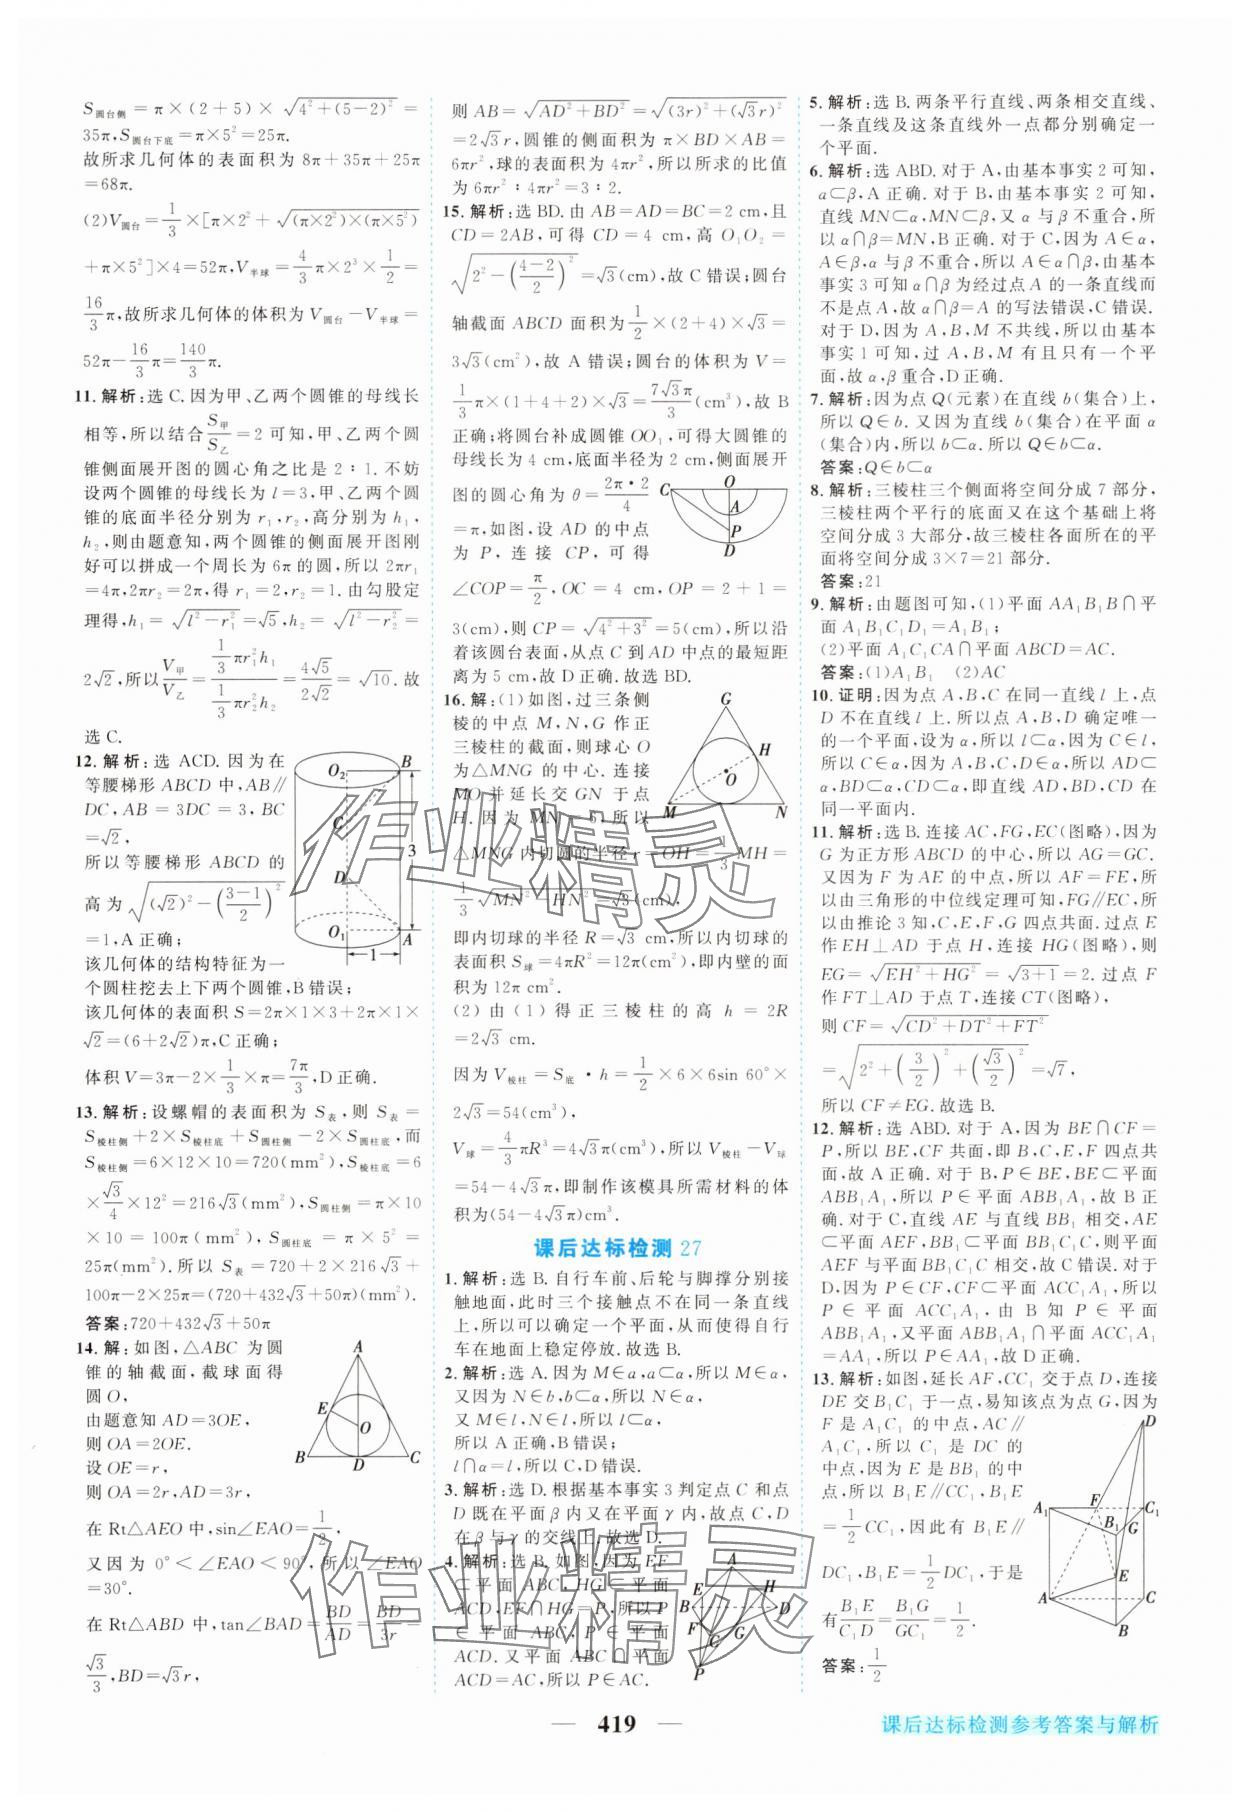 S圆台侧=π×(2+5)×√(4²+(5-2)²)=
35π,S圆台下底=π×5²=25π.
故所求几何体的表面积为 8π+35π+25π
=68π.
(2)V圆台=1/3×[π×2²+√((π×2²)×(π×5²))
+π×5²]×4=52π,V半球=4/3π×2³×1/2=
16/3π,故所求几何体的体积为 V圆台-V半球=
52π-16/3π=140/3π.
11.解析:选 C.因为甲、乙两个圆锥的母线长
相等,所以结合S甲/S乙=2 可知,甲、乙两个圆
锥侧面展开图的圆心角之比是 2∶1.不妨
设两个圆锥的母线长为 l=3,甲、乙两个圆
锥的底面半径分别为 r₁,r₂,高分别为 h₁,
h₂,则由题意知,两个圆锥的侧面展开图刚
好可以拼成一个周长为 6π的圆,所以 2πr₁
=4π,2πr₂=2π,得 r₁=2,r₂=1.由勾股定
理得,h₁=√(l²-r₁²)=√5,h₂=√(l²-r₂²)=
2√2,所以V甲/V乙=(1/3πr₁²h₁)/(1/3πr₂²h₂)=4√5/2√2=√10.故
选 C.
12.解析:选 ACD.因为在
等腰梯形 ABCD 中,AB∥
DC,AB=3DC=3,BC
=√2,
所以等腰梯形 ABCD 的
高为√((√2)²-((3-1)/2)²)
=1,A 正确;
该几何体的结构特征为一
个圆柱挖去上下两个圆锥,B 错误;
该几何体的表面积 S=2π×1×3+2π×1×
√2=(6+2√2)π,C 正确;
体积 V=3π-2×1/3×π=7π/3,D 正确.
13.解析:设螺帽的表面积为 S表,则 S表=
S棱柱侧+2×S棱柱底+S圆柱侧-2×S圆柱底,而
S棱柱侧=6×12×10=720(mm²),S棱柱底=6
×√3/4×12²=216√3(mm²),S圆柱侧=π×10
×10=100π(mm²),S圆柱底=π×5²=
25π(mm²).所以 S表=720+2×216√3+
100π-2×25π=(720+432√3+50π)mm².
答案:720+432√3+50π
14.解:如图,△ABC 为圆
锥的轴截面,截球面得
圆 O,
由题意知 AD=3OE,
则 OA=2OE.
设 OE=r,
则 OA=2r,AD=3r,
在 Rt△AEO 中,sin∠EAO=1/2,
又因为 0°<∠EAO<90°,所以∠EAO
=30°.
在 Rt△ABD 中,tan∠BAD=BD/AD=BD/3r=
√3/3,BD=√3r,
则 AB=√(AD²+BD²)=√((3r)²+(√3r)²)
=2√3r,圆锥的侧面积为 π×BD×AB=
6πr²,球的表面积为 4πr²,所以所求的比值
为 6πr²∶4πr²=3∶2.
15.解析:选 BD.由 AB=AD=BC=2 cm,且
CD=2AB,可得 CD=4 cm,高 O₁O₂=
√(2²-((4-2)/2)²)=√3(cm),故 C 错误;圆台
轴截面 ABCD 面积为1/2×(2+4)×√3=
3√3(cm²),故 A 错误;圆台的体积为 V=
1/3π×(1+4+2)×√3=7√3π/3(cm³),故 B
正确;将圆台补成圆锥 OO₁,可得大圆锥的
母线长为 4 cm,底面半径为 2 cm,侧面展开
图的圆心角为 θ=2π·2/4
=π,如图,设 AD 的中点
为 P,连接 CP,可得
∠COP=π/2,OC=4 cm,OP=2+1=
3(cm),则 CP=√(4²+3²)=5(cm),所以沿
着该圆台表面,从点 C 到 AD 中点的最短距
离为 5 cm,故 D 正确.故选 BD.
16.解:(1)如图,过三条侧
棱的中点 M,N,G 作正
三棱柱的截面,则球心 O
为△MNG 的中心.连接
MO 并延长交 GN 于点
H.因为 MN=6,所以
△MNG 内切圆的半径 r=OH=1/3MH=
1/3√(MN²-HN²)=√3(cm),
即内切球的半径 R=√3 cm,所以内切球的
表面积 S球=4πR²=12π(cm²),即内壁的面
积为 12π cm².
(2)由(1)得正三棱柱的高 h=2R
=2√3 cm.
因为 V棱柱=S底·h=1/2×6×6sin 60°×
2√3=54(cm³),
V球=4/3πR³=4√3π(cm³),所以 V棱柱-V球
=54-4√3π,即制作该模具所需材料的体
积为(54-4√3π)cm³.
课后达标检测 27
1.解析:选 B.自行车前、后轮与脚撑分别接
触地面,此时三个接触点不在同一条直线
上,所以可以确定一个平面,从而使得自行
车在地面上稳定停放.故选 B.
2.解析:选 A.因为 M∈a,a⊂α,所以 M∈α,
又因为 N∈b,b⊂α,所以 N∈α,
又 M∈l,N∈l,所以 l⊂α.
所以 A 正确,B 错误;
l∩α=l,所以 C,D 错误.
3.解析:选 D.根据基本事实 3 判定点 C 和点
D 既在平面 β 内又在平面 γ 内,故点 C,D
在 β 与 γ 的交线上.故选 D.
4.解析:选 B.如图,因为 EF
⊂平面 ABC,HG⊂平面
ACD,EF∩HG=P,所以 P
∈平面 ABC,P∈平面
ACD.又平面 ABC∩平面
ACD=AC,所以 P∈AC.
5.解析:选 B.两条平行直线、两条相交直线、
一条直线及这条直线外一点都分别确定一
个平面.
6.解析:选 ABD.对于 A,由基本事实 2 可知,
a⊂β,A 正确.对于 B,由基本事实 2 可知,
直线 MN⊂α,MN⊂β,又 α 与 β 不重合,所
以 α∩β=MN,B 正确.对于 C,因为 A∈α,
A∈β,α与β不重合,所以 A∈α∩β,由基本
事实 3 可知 α∩β 为经过点 A 的一条直线而
不是点 A,故 α∩β=A 的写法错误,C 错误.
对于 D,因为 A,B,M 不共线,所以由基本
事实 1 可知,过 A,B,M 有且只有一个平
面,故 α,β 重合,D 正确.
7.解析:因为点 Q(元素)在直线 b(集合)上,
所以 Q∈b.又因为直线 b(集合)在平面 α
(集合)内,所以 b⊂α.所以 Q∈b⊂α.
答案:Q∈b⊂α
8.解析:三棱柱三个侧面将空间分成 7 部分,
三棱柱两个平行的底面又在这个基础上将
空间分成 3 大部分,故三棱柱各面所在的平
面将空间分成 3×7=21 部分.
答案:21
9.解析:由题图可知,(1)平面 AA₁B₁B∩平
面 A₁B₁C₁D₁=A₁B₁;
(2)平面 A₁C₁CA∩平面 ABCD=AC.
答案:(1)A₁B₁ (2)AC
10.证明:因为点 A,B,C 在同一直线 l 上,点
D 不在直线 l 上.所以点 A,B,D 确定唯一
的一个平面,设为 α,所以 l⊂α,因为 C∈l,
所以 C∈α.因为 A∈α,D∈α,所以 AD⊂
α,BD⊂α,CD⊂α,即直线 AD,BD,CD 在
同一平面内.
11.解析:选 B.连接 AC,FG,EC(图略),因为
G 为正方形 ABCD 的中心,所以 AG=GC.
又因为 F 为 AE 的中点,所以 AF=FE,所
以由三角形的中位线定理可知,FG∥EC,所
以由推论 3 知,C,E,F,G 四点共面.过点 E
作 EH⊥AD 于点 H,连接 HG(图略),则
EG=√(EH²+HG²)=√(3+1)=2.过点 F
作 FT⊥AD 于点 T,连接 CT(图略),
则 CF=√(CD²+DT²+FT²)
=√(2²+(3/2)²+(√3/2)²)=√7,
所以 CF≠EG.故选 B.
12.解析:选 ABD.对于 A,因为 BE∩CF=
P,所以 BE,CF 共面,即 B,C,E,F 四点共
面,故 A 正确.对于 B,P∈BE,BE⊂平面
ABB₁A₁,所以 P∈平面 ABB₁A₁,故 B 正
确.对于 C,直线 AE 与直线 BB₁ 相交,AE
⊂平面 AEF,BB₁⊂平面 BB₁C₁C,平面
AEF 与平面 BB₁C₁C 相交,故 C 错误.对于
D,因为 P∈CF,CF⊂平面 ACC₁A₁,所以
P∈平面 ACC₁A₁,由 B 知 P∈平面
ABB₁A₁,又平面 ABB₁A₁∩平面 ACC₁A₁
=AA₁,所以 P∈AA₁,故 D 正确.
13.解析:如图,延长 AF,CC₁ 交于点 D,连接
DE 交 B₁C₁ 于一点,易知该点为点 G,因为
F 是 A₁C₁ 的中点,AC∥
A₁C₁,所以 C₁ 是 DC 的
中点,因为 E 是 BB₁ 的中
点,所以 B₁E∥CC₁,B₁E
=1/2CC₁,因此有 B₁E∥
DC₁,B₁E=1/2DC₁,于是
有B₁E/C₁D=B₁G/GC₁=1/2.
答案:1/2
419
课后达标检测参考答案与解析
作业精灵
作业精灵